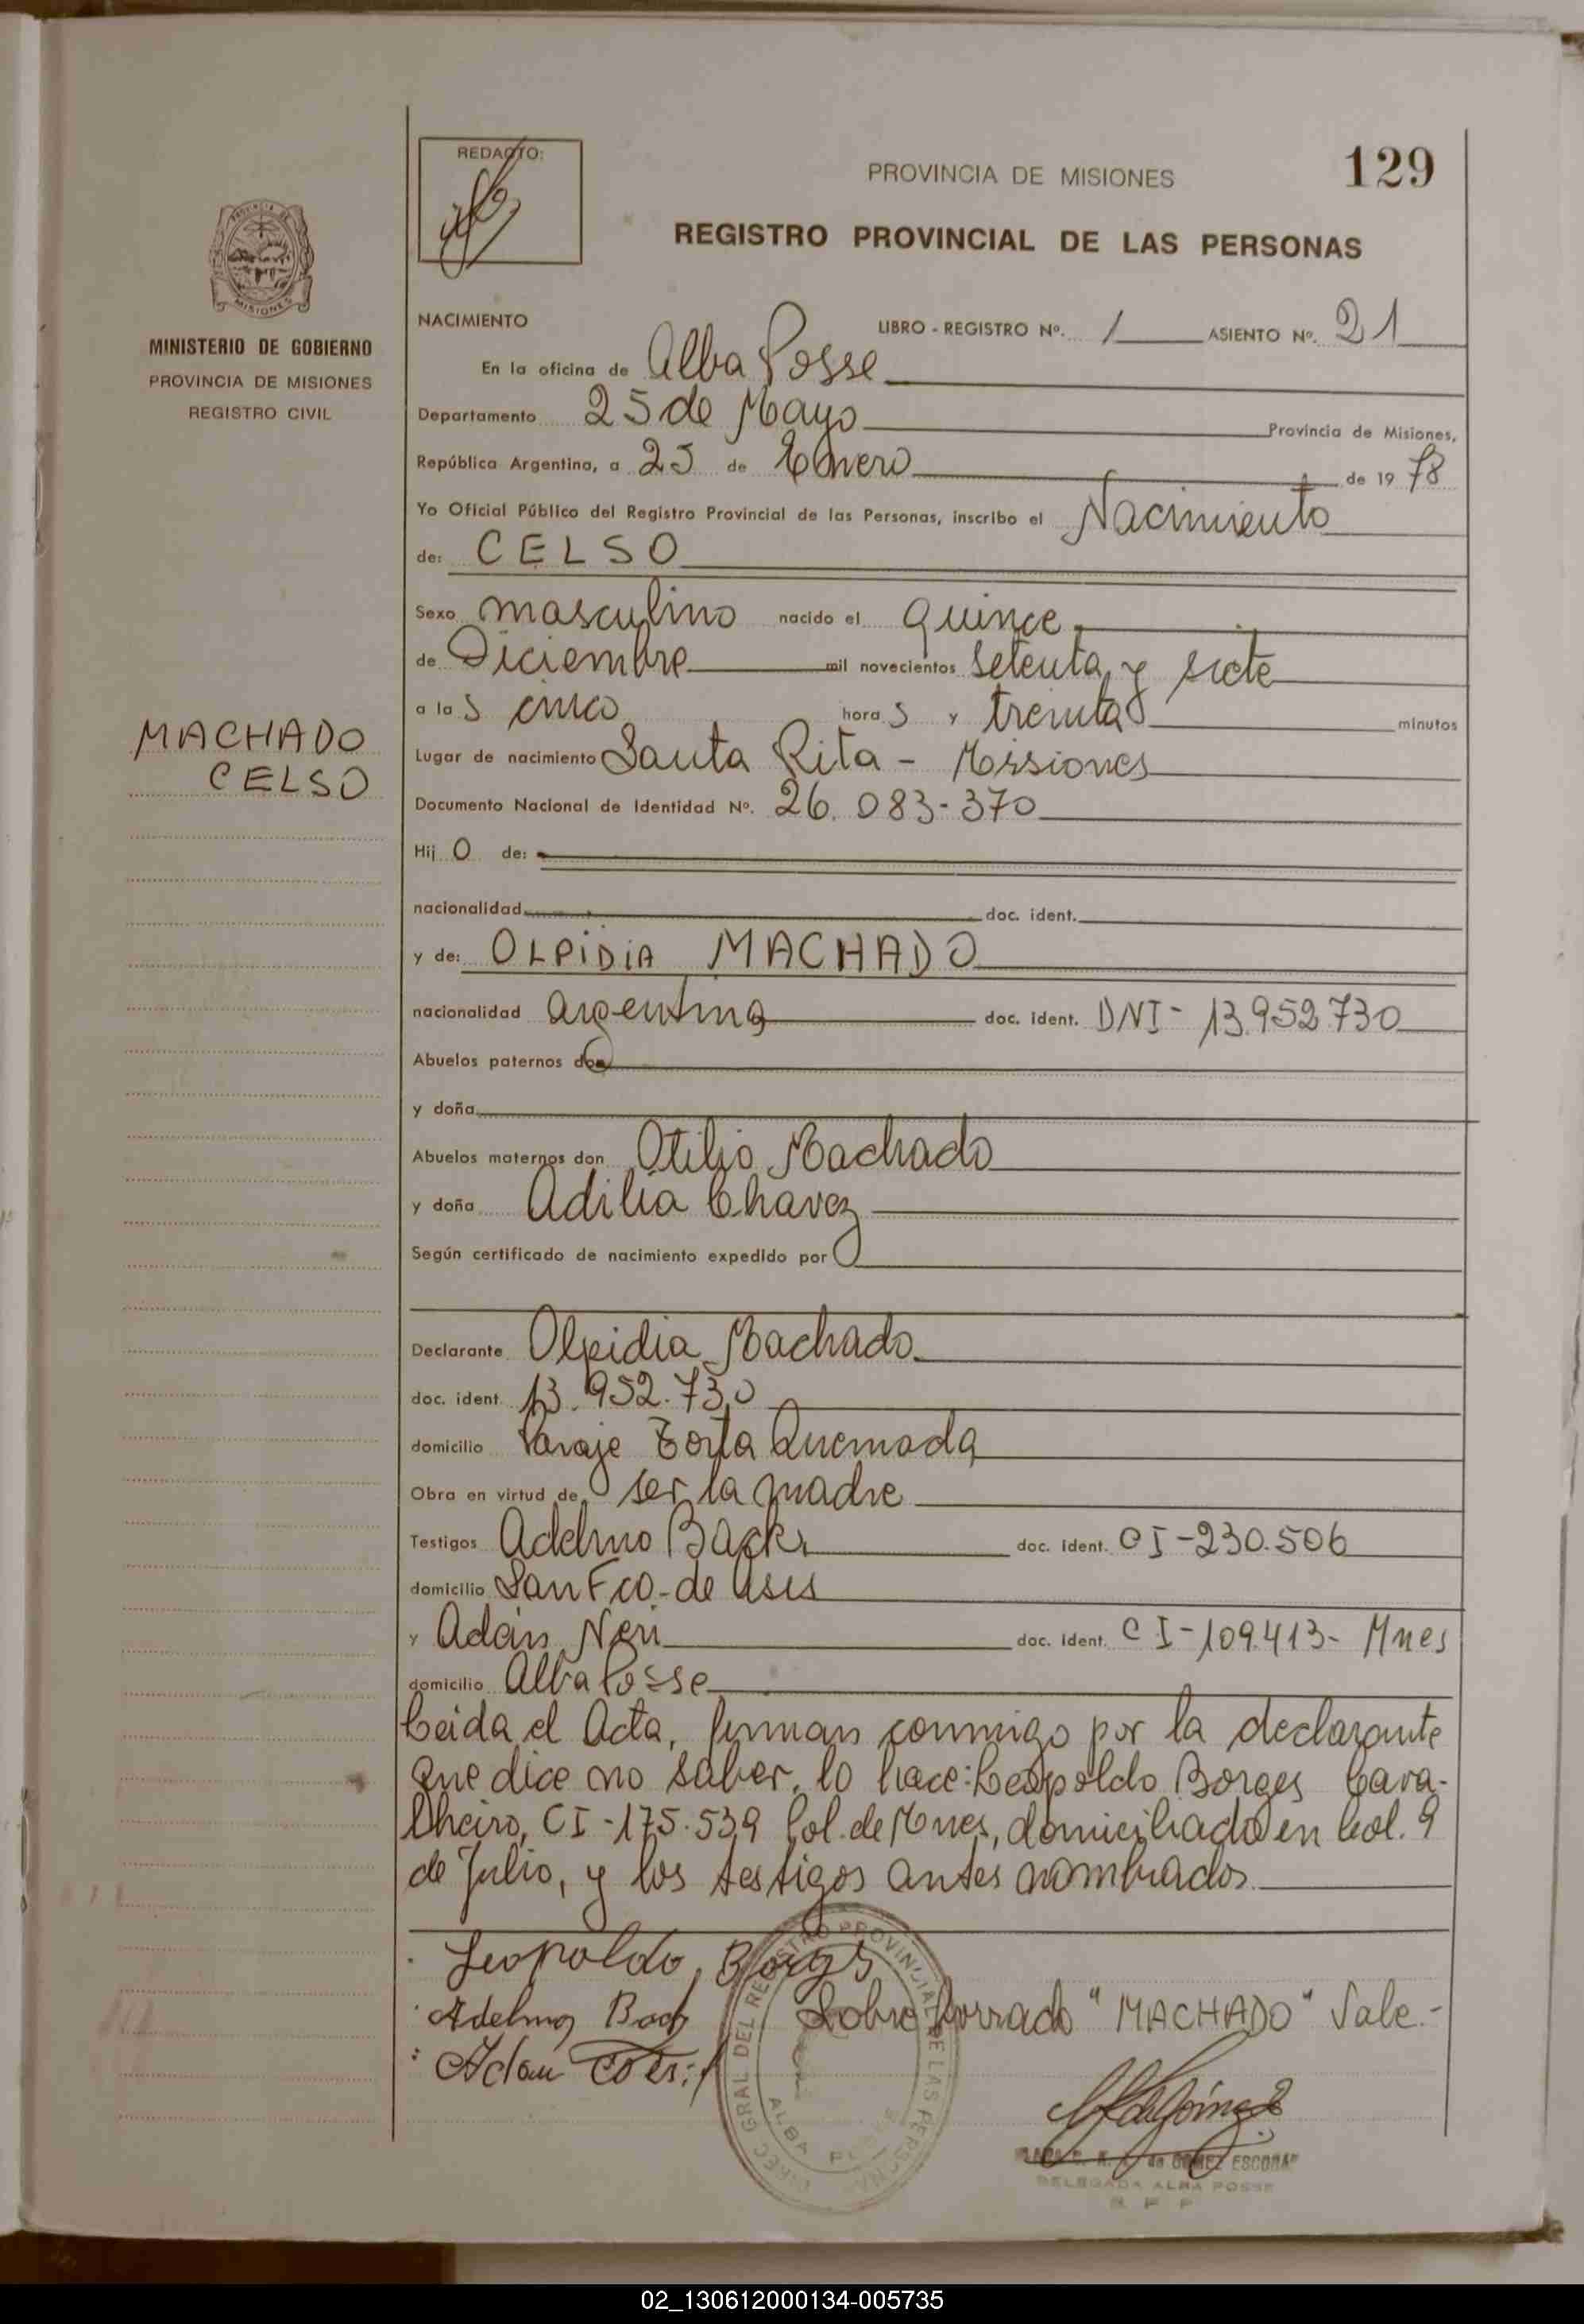 129
REDACTO:
PROVINCIA DE MISIONES
REGISTRO PROVINCIAL DE LAS PERSONAS
PROVINCIA DE
MISIONES
MINISTERIO DE GOBIERNO
PROVINCIA DE MISIONES
REGISTRO CIVIL
MACHADO
CELSO
NACIMIENTO LIBRO - REGISTRO Nº. 1 ASIENTO Nº. 21
En la oficina de Alba Posse
Departamento 25 de Mayo Provincia de Misiones,
República Argentina, a 25 de Enero de 19 78
Yo Oficial Público del Registro Provincial de las Personas, inscribo el Nacimiento
de: CELSO
Sexo masculino nacido el quince
de Diciembre mil novecientos setenta y siete
a las cinco horas y treinta minutos
Lugar de nacimiento Santa Rita - Misiones
Documento Nacional de Identidad Nº. 26.083-370
Hijo de:
nacionalidad doc. ident.
y de: OLPIDIA MACHADO
nacionalidad argentina doc. ident. DNI- 13.952.730
Abuelos paternos don
y doña
Abuelos maternos don Otilio Machado
y doña Adilia Chavez
Según certificado de nacimiento expedido por
Declarante Olpidia Machado
doc. ident. 13.952.730
domicilio Paraje Torta Quemada
Obra en virtud de ser la madre
Testigos Adelmo Back doc. ident. CI-230.506
domicilio San Fco. de Asis
y Adán Neri doc. ident. CI-109.413- Mnes
domicilio Alba Posse
Leida el Acta, firman conmigo por la declarante
que dice no saber, lo hace: Leopoldo Borges Cava-
lheiro, CI-175.539 Pol. de Mnes, domiciliado en Col. 9
de Julio, y los testigos antes nombrados.
Leopoldo Borges
Adelmo Back
Sobre borrado "MACHADO" Vale.-
Adan
DIREC GRAL DEL REGISTRO PROVINCIAL DE LAS PERSONAS
ALBA POSSE
de GOMEZ ESCOBAR
DELEGADA ALBA POSSE
02_130612000134-005735